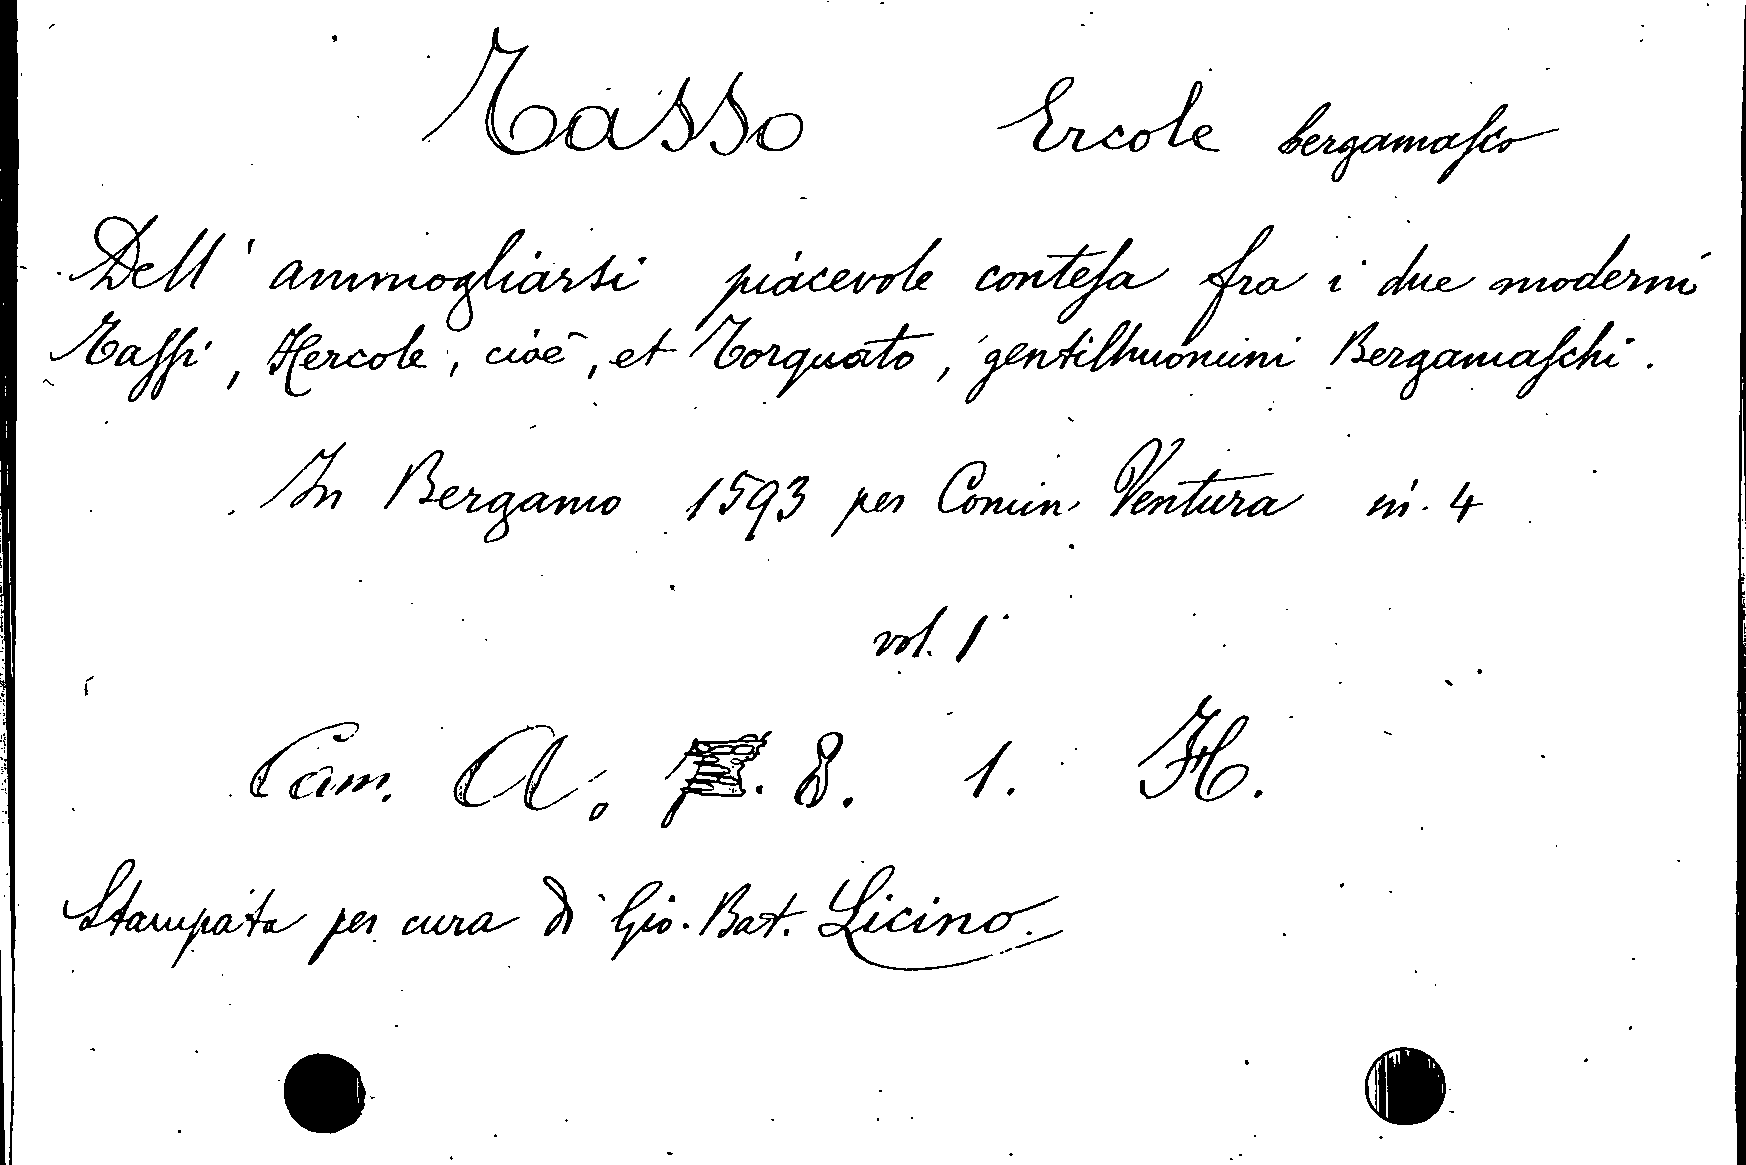 Tasso Ercole bergamaſco
Dell' ammogliarsi piacevole conteſa fra i due moderni
Taſſi, Hercole, cioè, et Torquato, gentilhuomini Bergamaſchi.
In Bergamo 1593 per Comin Ventura in. 4
vol. 1
Cam. A. 8. 1. H.
Stampata per cura di Gio. Bat. Licino.